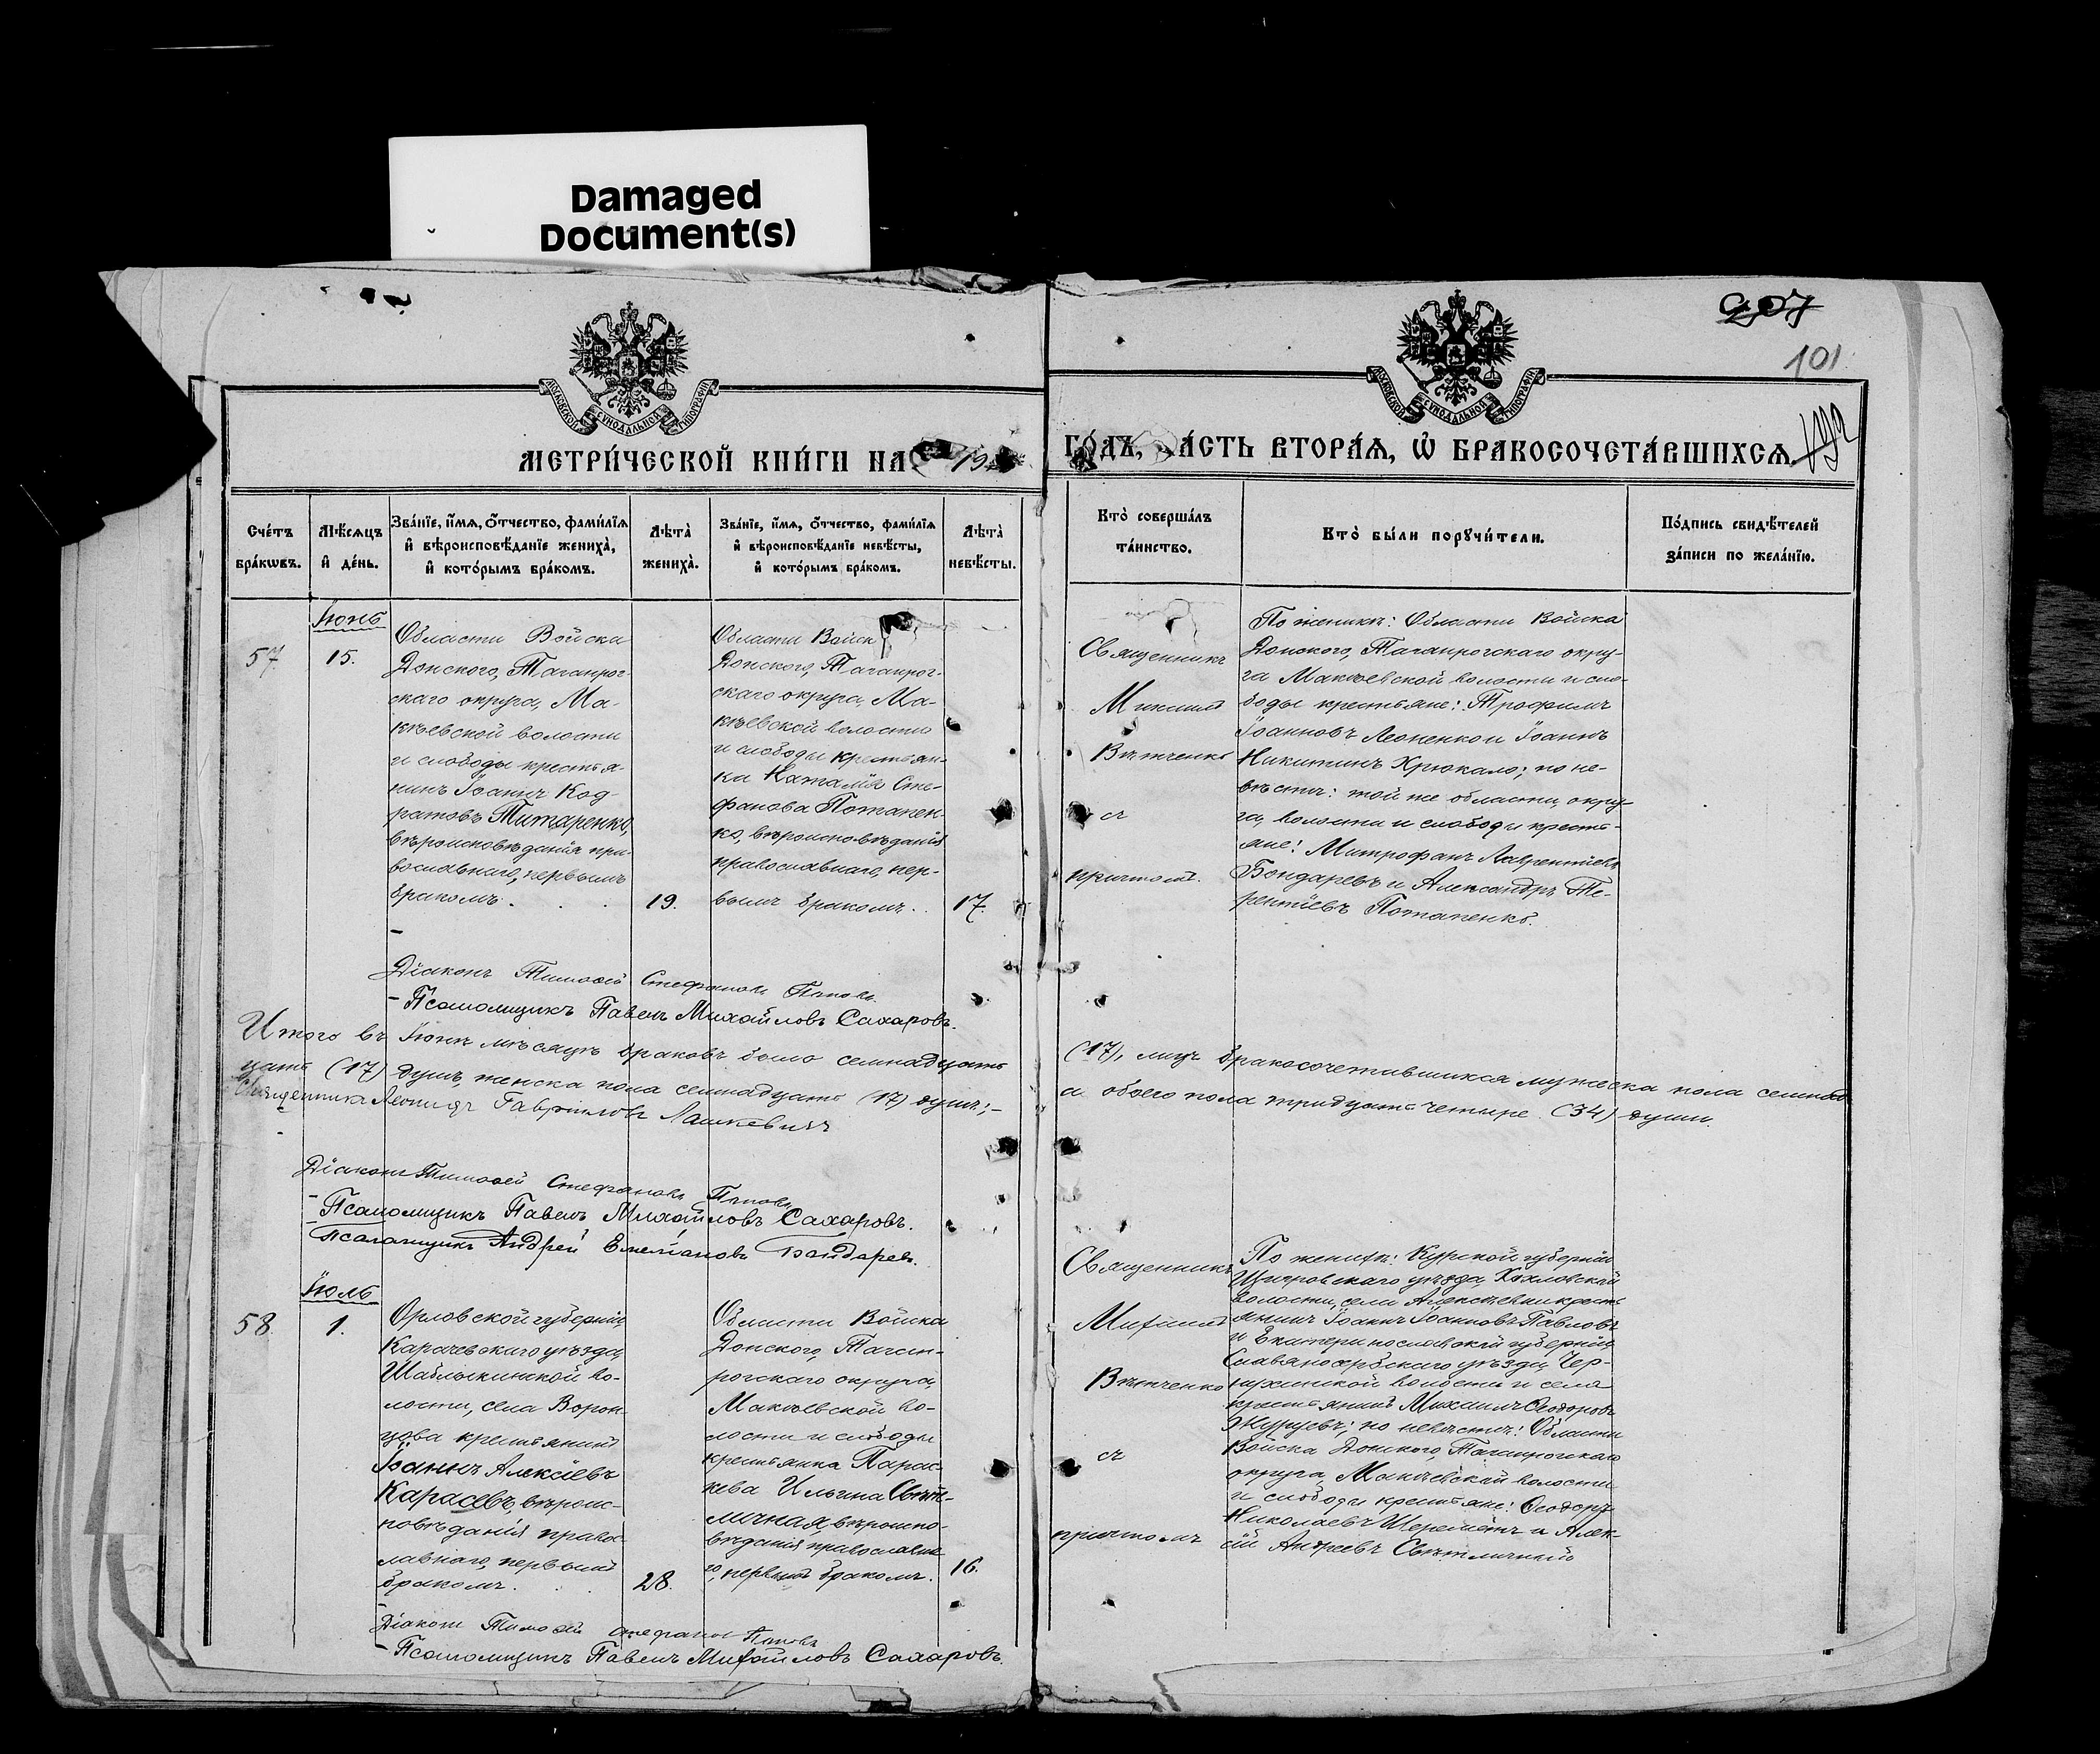 Damaged
Document(s)
207
101
МОСКОВСКОЙ СѴНОДАЛЬНОЙ ТИПОГРАФІИ
МОСКОВСКОЙ СѴНОДАЛЬНОЙ ТИПОГРАФІИ
МЕТРИ́ЧЕСКОЙ КНИ́ГИ НА 19
ГО́ДЪ, ЧА́СТЬ ВТОРА́Я, Ѡ БРАКОСОЧЕТА́ВШИХСЯ.
Сче́тъ бра́кѡвъ.
Мѣ́сяцъ и де́нь.
Зва́нїе, и́мя, о́тчество, фами́лїя и вѣроисповѣ́данїе жениха̀, и кото́рымъ бра́комъ.
Лѣта̀ жениха̀.
Зва́нїе, и́мя, о́тчество, фами́лїя и вѣроисповѣ́данїе невѣ́сты, и кото́рымъ бра́комъ.
Лѣта̀ невѣ́сты.
Кто̀ соверша́лъ та́инство.
Кто̀ бы́ли порꙋчи́тели.
По́дпись свидѣ́телей за́писи по жела́нїю.
Іюнь
57
15.
Области Войска
Донского, Таганрог-
скаго округа, Ма-
кѣевской волости
и слободы крестья-
нинъ Іоаннъ Код-
ратовъ Титаренко,
вѣроисповѣданія пра-
вославнаго, первымъ
бракомъ.
19.
Области Войск
Донского, Таганрог-
скаго округа, Ма-
кѣевской волости
и слободы крестьян-
ка Наталія Сте-
фанова Потапен-
ко, вѣроисповѣданія
православнаго, пер-
вымъ бракомъ.
17.
Священникъ
Михаилъ
Вѣтченко
съ
причтомъ.
По женихѣ: Области Войска
Донского, Таганрогскаго окру-
га Макѣевской волости и сло-
боды крестьяне: Трофимъ
Іоанновъ Леоненко и Іоаннъ
Никитинъ Хрюкало; по не-
вѣстѣ: той же области, окру-
га, волости и слободы кресть-
яне: Митрофанъ Лаврентіевъ
Бондаревъ и Александръ Те-
рентіевъ Потапенко.
Діаконъ Тимоѳей Стефановъ Поповъ
Псаломщикъ Павелъ Михайловъ Сахаровъ.
Итого въ Іюнѣ мѣсяцѣ браковъ было семнадцать
(17), лицъ бракосочетавшихся мужеска пола семнад
цать (17) душъ, женска пола семнадцать (17) душъ;
а обоего пола тридцать четыре (34) души.
Священникъ Леонидъ Гавриловъ Лашкевичъ
Діаконъ Тимоѳей Стефановъ Поповъ
Псаломщикъ Павелъ Михайловъ Сахаровъ.
Псаломщикъ Андрей Емельяновъ Бондарев.
Іюль
58
1.
Орловской губерніи,
Карачевскаго уѣзда,
Шаблыкинской во-
лости, села Ворон-
цова крестьянинъ
Іоаннъ Алексіевъ
Карасевъ, вѣроис-
повѣданія правос-
лавнаго, первымъ
бракомъ.
28.
Области Войска
Донского, Таган-
рогскаго округа,
Макѣевской во-
лости и слободы
крестьянка Парас-
кева Ильина Свѣт-
личная, вѣроиспо-
вѣданія православна
го, первымъ бракомъ.
16.
Священникъ
Михаилъ
Вѣтченко
съ
причтомъ
По женихѣ: Курской губерніи
Щигровскаго уѣзда, Хохловской
волости, села Алексѣевки кресть
янинъ Іоаннъ Іоанновъ Павловъ
и Екатеринославской губерніи,
Славяносербскаго уѣзда, Чер-
касской волости и села
крестьянинъ Михаилъ Ѳеодоровъ
Журуевъ; по невѣстѣ: Области
Войска Донского, Таганрогскаго
округа, Макѣевской волости
и слободы крестьяне: Ѳеодоръ
Николаевъ Шереметъ и Алек-
сій Андреевъ Свѣтличный
Діаконъ Тимоѳей Стефановъ Поповъ
Псаломщикъ Павелъ Михайловъ Сахаровъ.